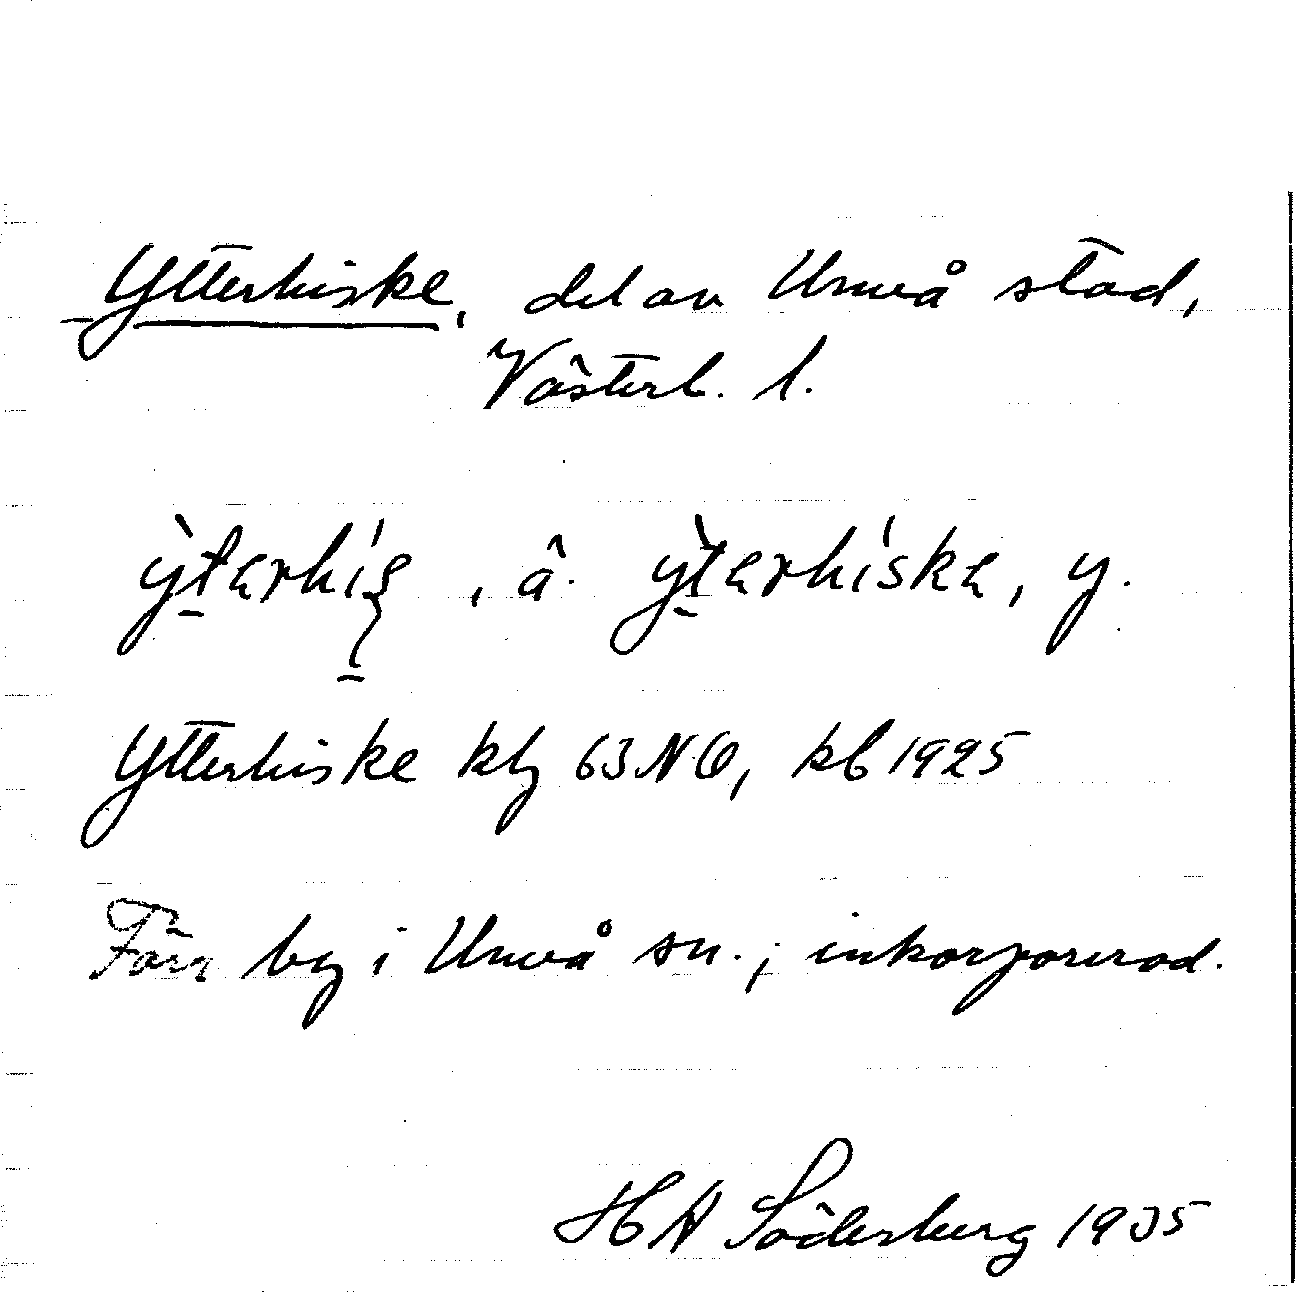 Ytterhiske, del av Umeå stad,
Västerb. l.
, ä. , y.
Ytterhiske kbl 63 NO, kb 1925
Förr by i Umeå sn.; inkorporerad.
HA Söderberg 1935